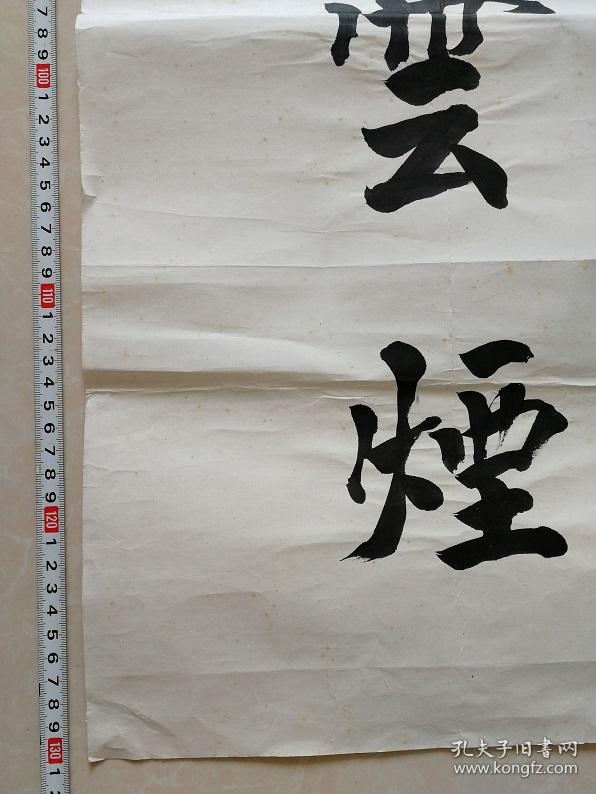 雲
煙
7
8
9
100
1
2
3
4
5
6
7
8
9
110
1
2
3
4
5
6
7
8
9
120
1
2
3
4
5
6
7
8
9
130
1
孔夫子旧書网
www.kongfz.com